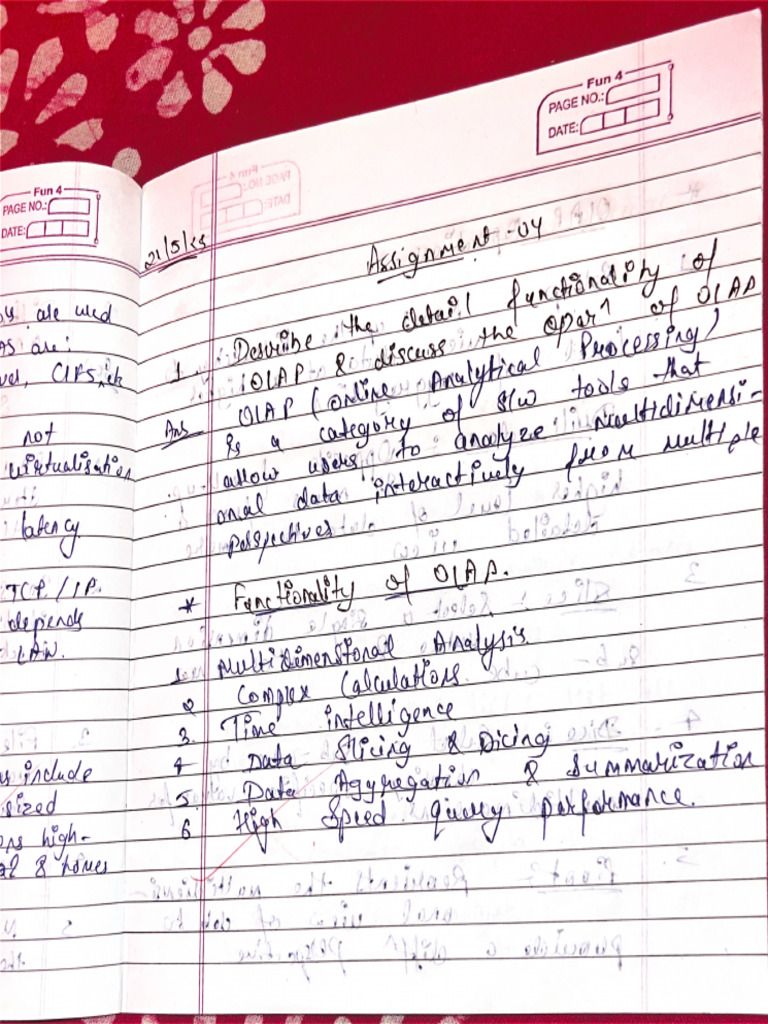 Fun 4
PAGE NO.:
DATE:
are used
AS are:
CIFS, etc
not
virtualisation
latency
TCP / IP.
depends
LAN.
include
sized
high-
Fun 4
PAGE NO.:
DATE:
21/5/25
Assignment - 04
1. Describe the detail functionality of
OLAP & discuss the oparn of OLAP
Ans OLAP (Online Analytical Processing)
is a category of S/W tools that
allow users to analyze multidimensi-
onal data interactively from multiple
perspectives
* Functionality of OLAP.
1. Multidimensional Analysis.
2 Complex Calculations.
3. Time intelligence
4 Data Slicing & Dicing
5. Data Aggregation & Summarization
6 High Speed query performance.